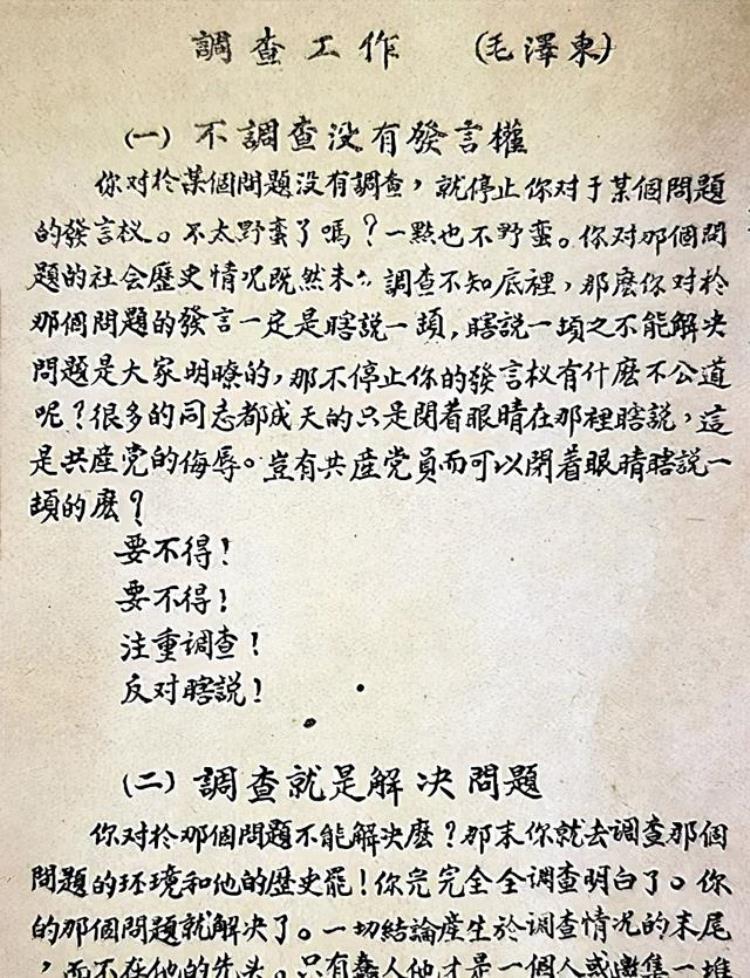 調查工作 (毛澤東)
(一) 不調查没有發言權
你对於某個問題没有調查，就停止你对于某個問題
的發言权。不太野蛮了嗎？一點也不野蛮。你对那個問
題的社会歷史情况既然未 調查不知底裡，那麽你对於
那個問題的發言一定是瞎說一頓，瞎說一頓之不能解决
問題是大家明瞭的，那不停止你的發言权有什麽不公道
呢？很多的同志都成天的只是閉着眼睛在那裡瞎說，這
是共産党的侮辱。豈有共産党員而可以閉着眼睛瞎說一
頓的麽？
要不得！
要不得！
注重調查！
反对瞎說！
(二) 調查就是解决問題
你对於那個問題不能解决麽？那末你就去調查那個
問題的环境和他的歷史罷！你完完全全調查明白了。你
的那個問題就解决了。一切結論産生於調查情况的末尾
，而不在他的先头。只有蠢人他才是一個人或邀集一堆